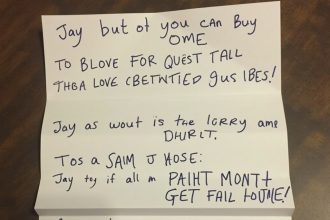 Jay but of you can Buy
OME
TO BLOVE FOR QUEST TALL
THBA LOVE CBETWTIED gus IBES!
Jay as wout is the lorry ame
DHURLT.
Tos a SAIM J HOSE:
Jay toy if all m PAIHT MONTH
GET FAIL HOUME!